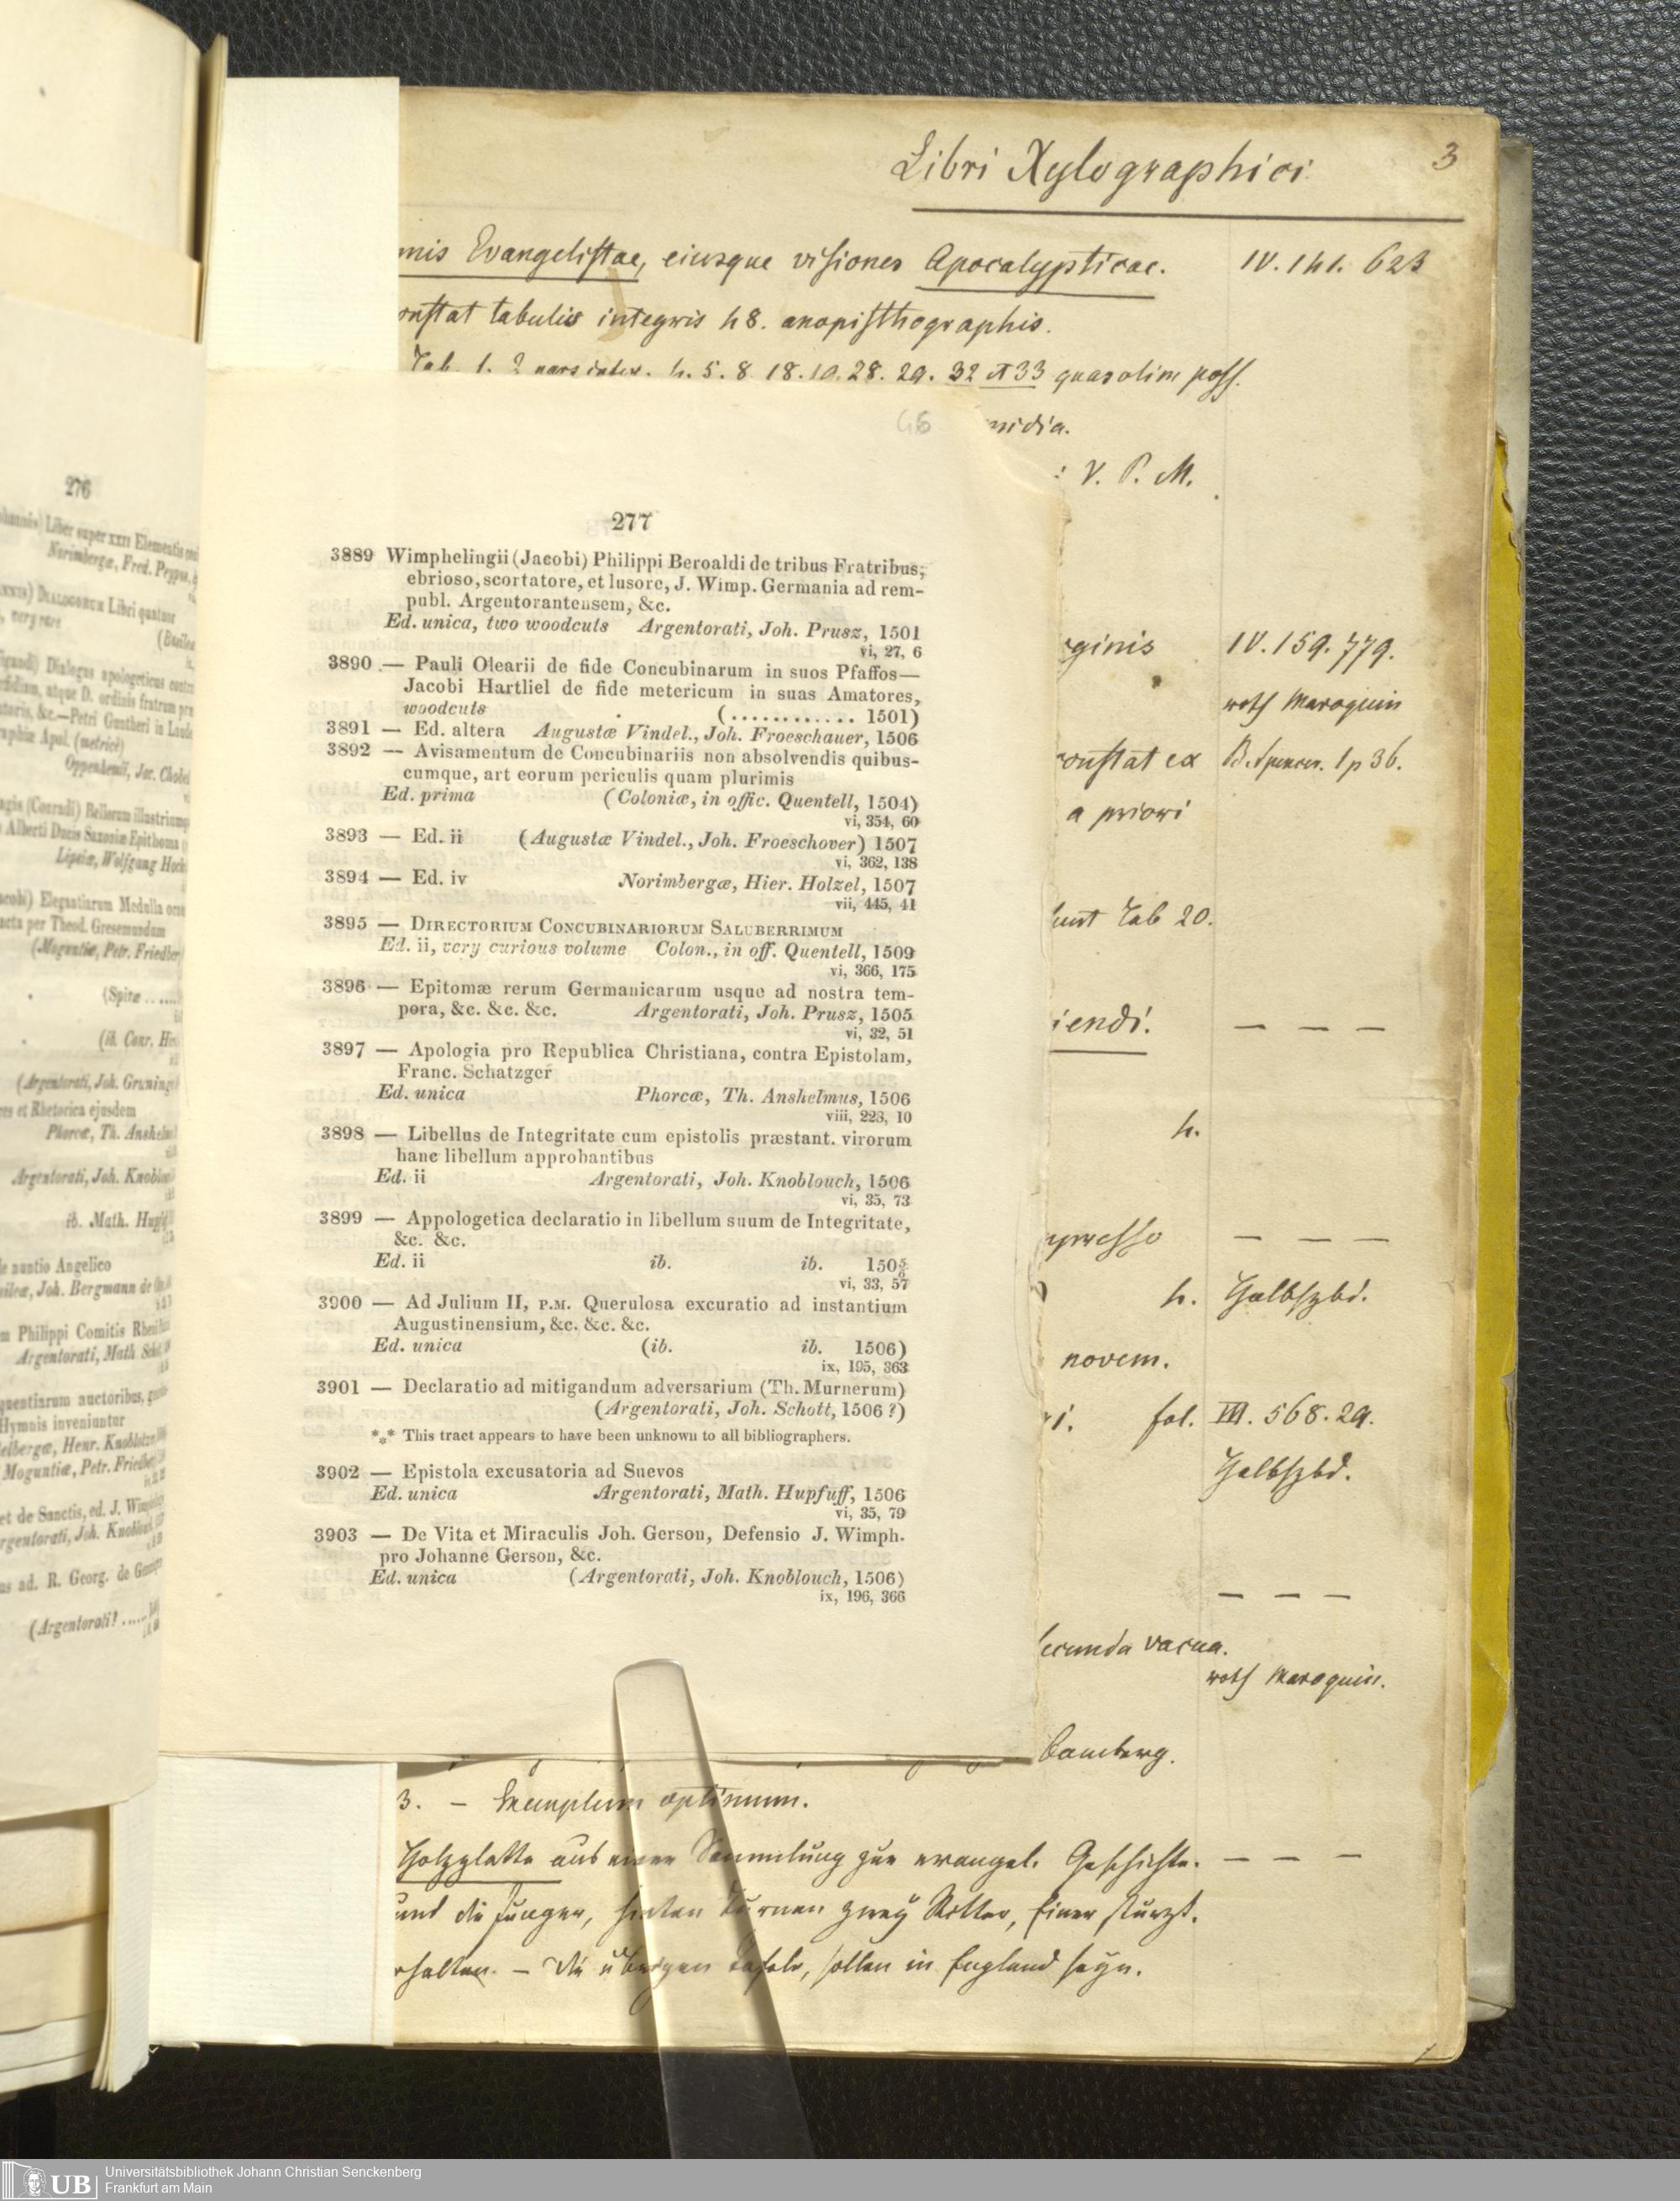 276
Liber super xxii Elementis
Norimbergæ, Fred. Peypus,
Dialogorum Libri quatuor
very rare
Dialogus apologeticus contra
atque D. ordinis fratrum
&c.—Petri Guntheri in
Apol. (metrice)
Oppenhemii, Jac.
(Conradi) Bellorum
Alberti Ducis Saxoniæ Epithoma
Lipsiæ, Wolfgang
Elegantiarum Medulla
per Theod. Gresemundum
(Moguntiæ, Petr.
(Spiræ ......
(ib. Conr.
(Argentorati, Joh.
et Rhetorica ejusdem
Phorcæ, Th.
Argentorati, Joh.
ib. Math.
nuntio Angelico
Joh. Bergmann de
Philippi Comitis
Argentorati, Math
auctoribus,
Hymnis inveniuntur
Henr.
Moguntiæ, Petr.
et de Sanctis, ed. J.
Joh.
ad. R. Georg. de
(Argentorati? .....
Libri Xylographici
3
Evangelistae, eiusque visiones Apocalypticae. IV. 141. 623
tabulis integris 48. anopisthographis.
Tab. 1. 5. 8 18. 19. 28. 29. 32 et 33 quas olim poss.
V. P. M.
46
277
3889 Wimphelingii (Jacobi) Philippi Beroaldi de tribus Fratribus,
ebrioso, scortatore, et lusore, J. Wimp. Germania ad rem-
publ. Argentorantensem, &c.
Ed. unica, two woodcuts Argentorati, Joh. Prusz, 1501
vi, 27, 6
3890 — Pauli Olearii de fide Concubinarum in suos Pfaffos—
Jacobi Hartliel de fide metericum in suas Amatores,
woodcuts (............ 1501)
3891 — Ed. altera Augustæ Vindel., Joh. Froeschauer, 1506
3892 — Avisamentum de Concubinariis non absolvendis quibus-
cumque, art eorum periculis quam plurimis
Ed. prima (Coloniæ, in offic. Quentell, 1504)
vi, 354, 60
3893 — Ed. ii (Augustæ Vindel., Joh. Froeschover) 1507
vi, 362, 138
3894 — Ed. iv Norimbergæ, Hier. Holzel, 1507
vii, 445, 41
3895 — Directorium Concubinariorum Saluberrimum
Ed. ii, very curious volume Colon., in off. Quentell, 1509
vi, 366, 175
3896 — Epitomæ rerum Germanicarum usque ad nostra tem-
pora, &c. &c. &c. Argentorati, Joh. Prusz, 1505
vi, 32, 51
3897 — Apologia pro Republica Christiana, contra Epistolam,
Franc. Schatzger
Ed. unica Phorcæ, Th. Anshelmus, 1506
viii, 228, 10
3898 — Libellus de Integritate cum epistolis præstant. virorum
hanc libellum approbantibus
Ed. ii Argentorati, Joh. Knoblouch, 1506
vi, 35, 73
3899 — Appologetica declaratio in libellum suum de Integritate,
&c. &c.
Ed. ii ib. ib. 150 5/6
vi, 33, 57
3900 — Ad Julium II, p.m. Querulosa excuratio ad instantium
Augustinensium, &c. &c. &c.
Ed. unica (ib. ib. 1506)
ix, 195, 363
3901 — Declaratio ad mitigandum adversarium (Th. Murnerum)
(Argentorati, Joh. Schott, 1506 ?)
*** This tract appears to have been unknown to all bibliographers.
3902 — Epistola excusatoria ad Suevos
Ed. unica Argentorati, Math. Hupfuff, 1506
vi, 35, 79
3903 — De Vita et Miraculis Joh. Gerson, Defensio J. Wimph.
pro Johanne Gerson, &c.
Ed. unica (Argentorati, Joh. Knoblouch, 1506)
ix, 196, 366
ginis IV. 159. 779.
roth Maroquin
constat ex B. Spencer. 1 p 36.
a priori
sunt Tab 20.
iendi. — — —
4.
— — —
4. Halbfzbd.
novem.
fol. III. 568. 29.
Halbfzbd.
— — —
secunda vacua.
roth Maroquin.
Bamberg.
3. — Exemplum optimum.
Holzplatte aus einer Sammlung zur evangel. Geschichte. — — —
und die Junger, hinten turnen zwey Ritter, einer sturzt.
— die übrigen Tafeln, sollen in England seyn.
UB
Universitätsbibliothek Johann Christian Senckenberg
Frankfurt am Main